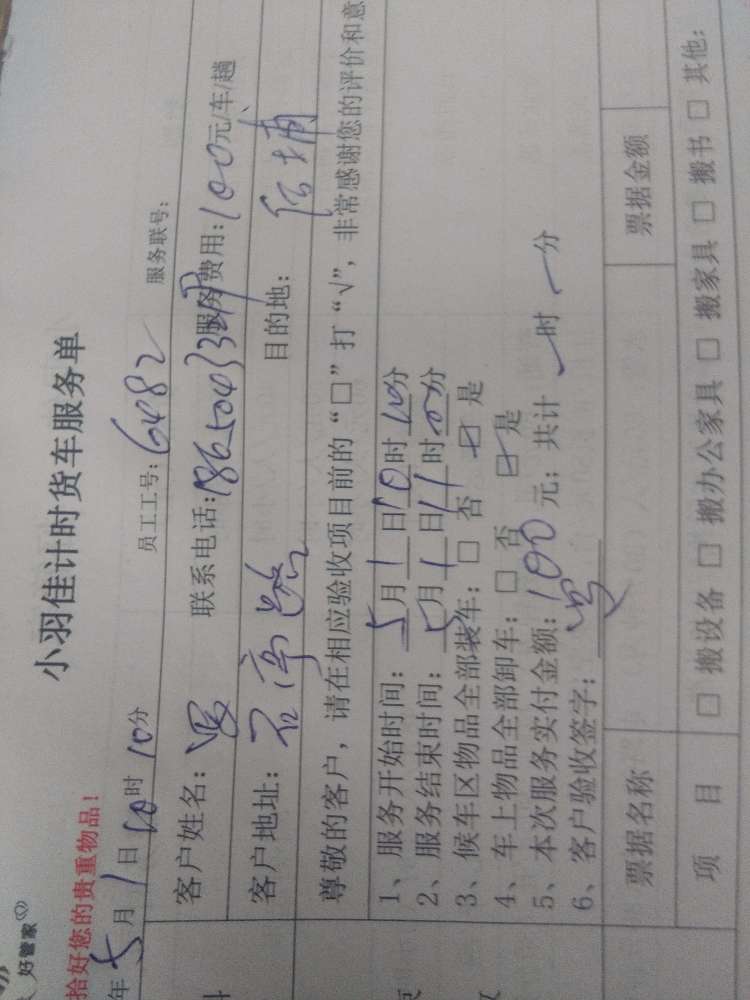 好管家
拾好您的贵重物品！
小羽佳计时货车服务单
年5月1日10时10分 员工工号：6482 服务联号：
客户姓名： 联系电话：1865043 服务费用：100元/车/趟
客户地址： 目的地：后埔
尊敬的客户，请在相应验收项目前的“□”打“√”，非常感谢您的评价和意
1、服务开始时间：5月1日10时10分
2、服务结束时间：5月1日11时00分
3、候车区物品全部装车：□ 否 ☑ 是
4、车上物品全部卸车：□ 否 ☑ 是
5、本次服务实付金额：100元；共计 时 分
6、客户验收签字：
票据名称 票据金额
项 目 □ 搬设备 □ 搬办公家具 □ 搬家具 □ 搬书 □ 其他：